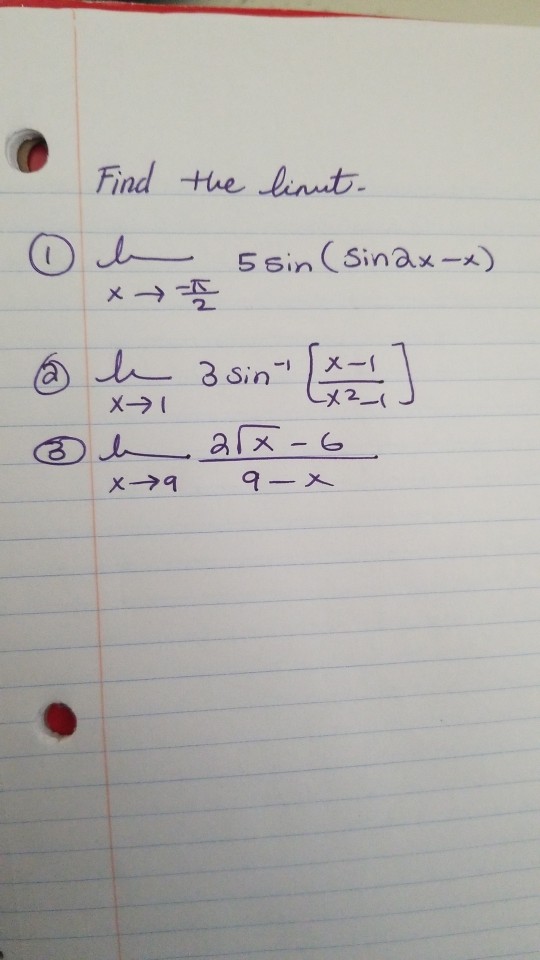 Find the limit.
① lim x → -π/2 5 sin (sin2x - x)
② lim x→1 3 sin⁻¹ [x-1 / x²-1]
③ lim x→9 2√x - 6 / 9 - x